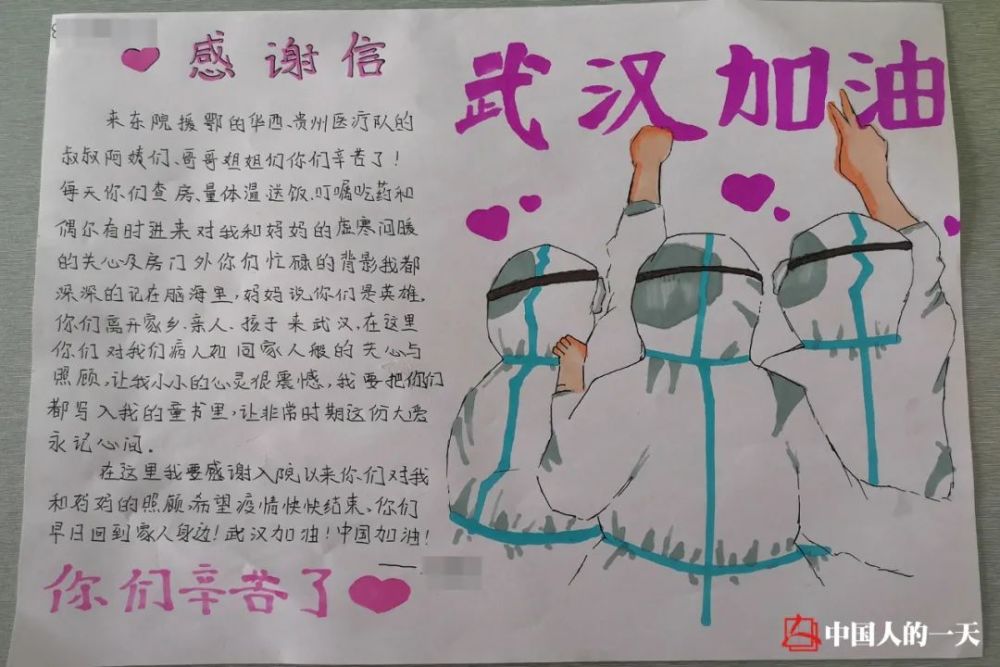 感谢信
来东院援鄂的华西、贵州医疗队的
叔叔阿姨们、哥哥姐姐们你们辛苦了！
每天你们查房、量体温送饭、叮嘱吃药和
偶尔有时进来对我和妈妈的虚寒问暖
的关心及房门外你们忙碌的背影我都
深深的记在脑海里，妈妈说你们是英雄。
你们离开家乡、亲人、孩子来武汉，在这里
你们对我们病人如同家人般的关心与
照顾，让我小小的心灵很震憾，我要把你们
都写入我的童书里，让非常时期这份大爱
永记心间。
在这里我要感谢入院以来你们对我
和妈妈的照顾，希望疫情快快结束，你们
早日回到家人身边！武汉加油！中国加油！
你们辛苦了
武汉加油
中国人的一天